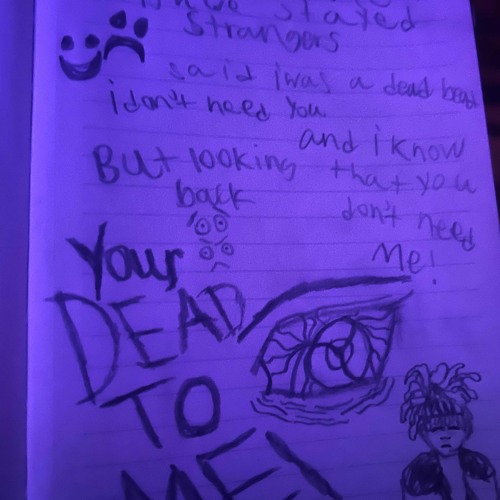 stayed
strangers
said i was a dead beat
i don't need you
and i know
that you
don't need
Me!
But looking
back
Your
DEAD
TO
ME!